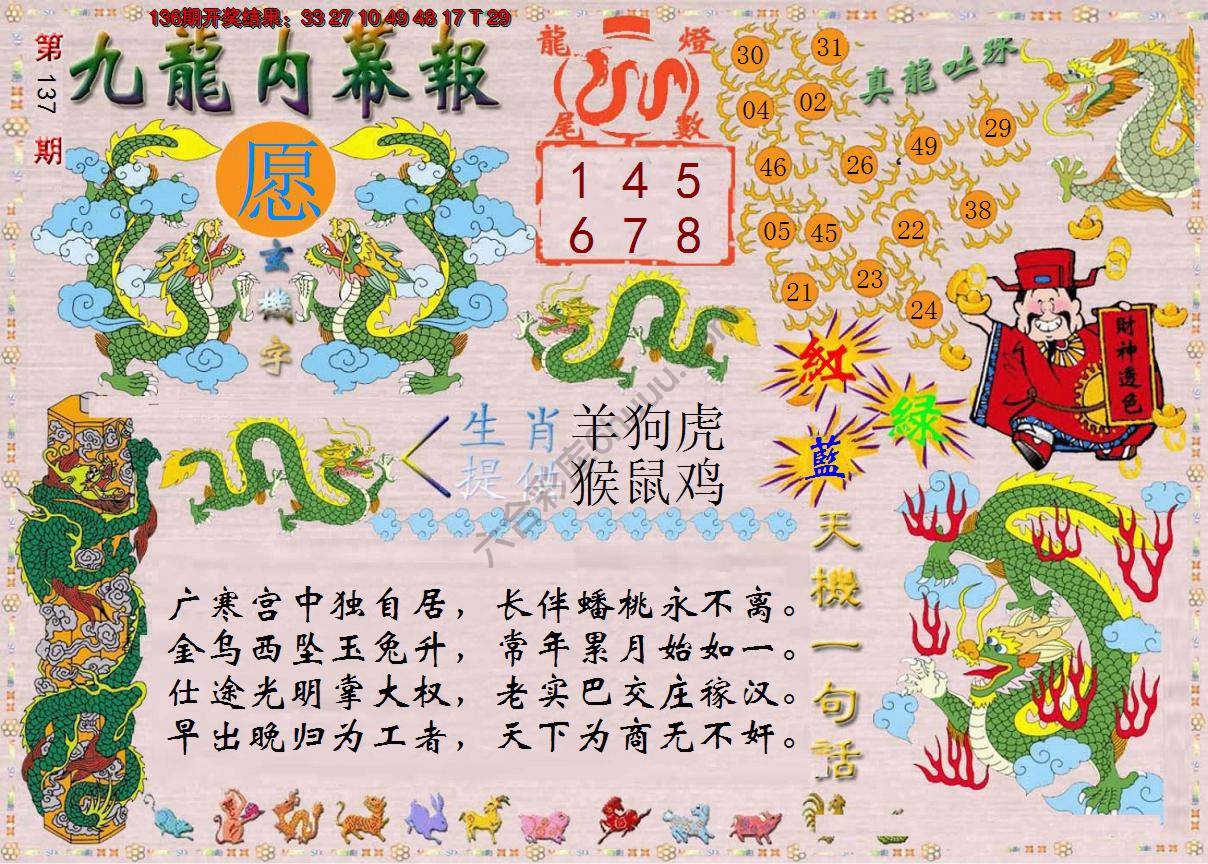 136期开奖结果：33 27 10 49 48 17 T 29
第137期
九龍内幕報
愿
玄機字
龍燈尾數
1 4 5
6 7 8
真龍吐珠
30 31
04 02
46 26 49 29
05 45 22 38
21 23 24
財神透色
紅
綠
藍
生肖
提供
羊狗虎
猴鼠鸡
天機一句話
广寒宫中独自居，长伴蟠桃永不离。
金乌西坠玉兔升，常年累月始如一。
仕途光明掌大权，老实巴交庄稼汉。
早出晚归为工者，天下为商无不奸。